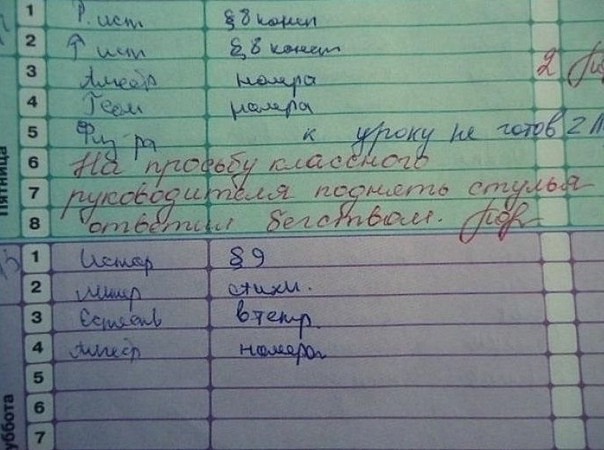 1 Р. ист § 8 конеп
2 Р ист § 8 конет
3 Алгебр номера 2
4 Геом номера
5 Физ ра к уроку не готов 2
6 На просьбу классного
7 руководителя поднять стулья
8 ответил бегством.
Пятница
1 Истор § 9
2 Литер стихи.
3 Естеств в тетр.
4 Алгебр номера
5
6
7
уббота